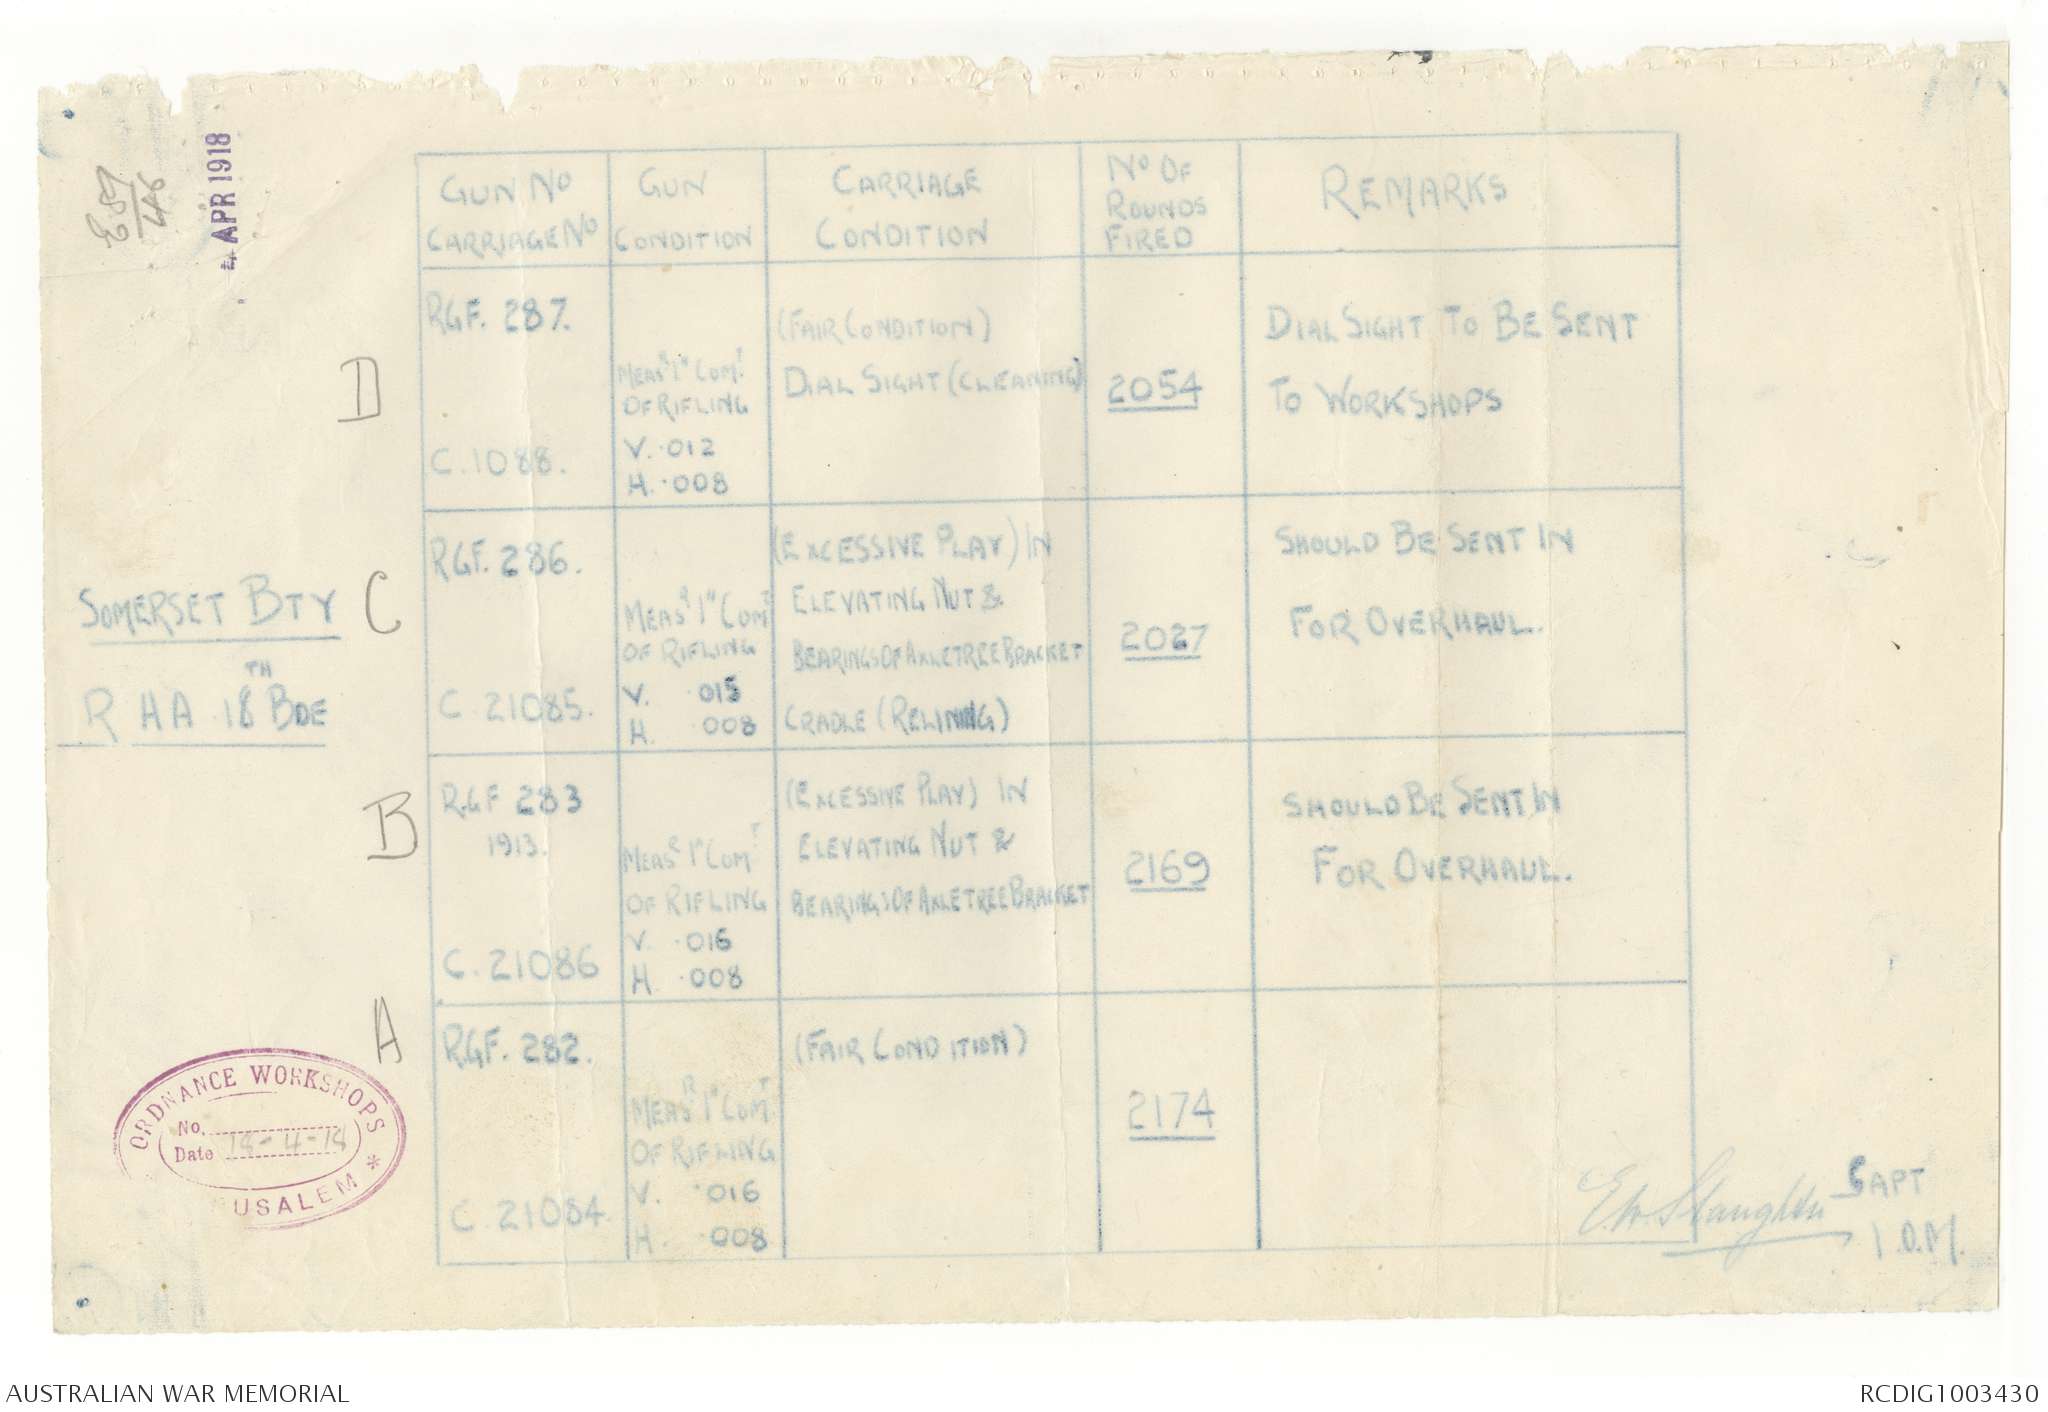 E87/46
4 APR 1918
GUN No
CARRIAGE No
GUN
CONDITION
CARRIAGE
CONDITION
No OF
ROUNDS
FIRED
REMARKS
D
RGF. 287.
C. 1088.
MEASR 1" COMT
OF RIFLING
V. .012
H. .008
(FAIR CONDITION)
DIAL SIGHT (CLEANING)
2054
DIAL SIGHT TO BE SENT
TO WORKSHOPS
SOMERSET BTY
R HA 18TH BDE
C
RGF. 286.
C. 21085.
MEASR 1" COMT
OF RIFLING
V. .015
H. .008
(EXCESSIVE PLAY) IN
ELEVATING NUT &
BEARINGS OF AXLETREE BRACKET
CRADLE (RELINING)
2027
SHOULD BE SENT IN
FOR OVERHAUL.
B
RGF 283
1913.
C. 21086
MEASR 1" COMT
OF RIFLING
V. .016
H. .008
(EXCESSIVE PLAY) IN
ELEVATING NUT &
BEARINGS OF AXLETREE BRACKET
2169
SHOULD BE SENT IN
FOR OVERHAUL.
A
RGF. 282.
C. 21084.
MEASR 1" COMT
OF RIFLING
V. .016
H. .008
(FAIR CONDITION)
2174
ORDNANCE WORKSHOPS
No.
Date 18-4-18
USALEM *
CAPT
I.O.M.
AUSTRALIAN WAR MEMORIAL
RCDIG1003430